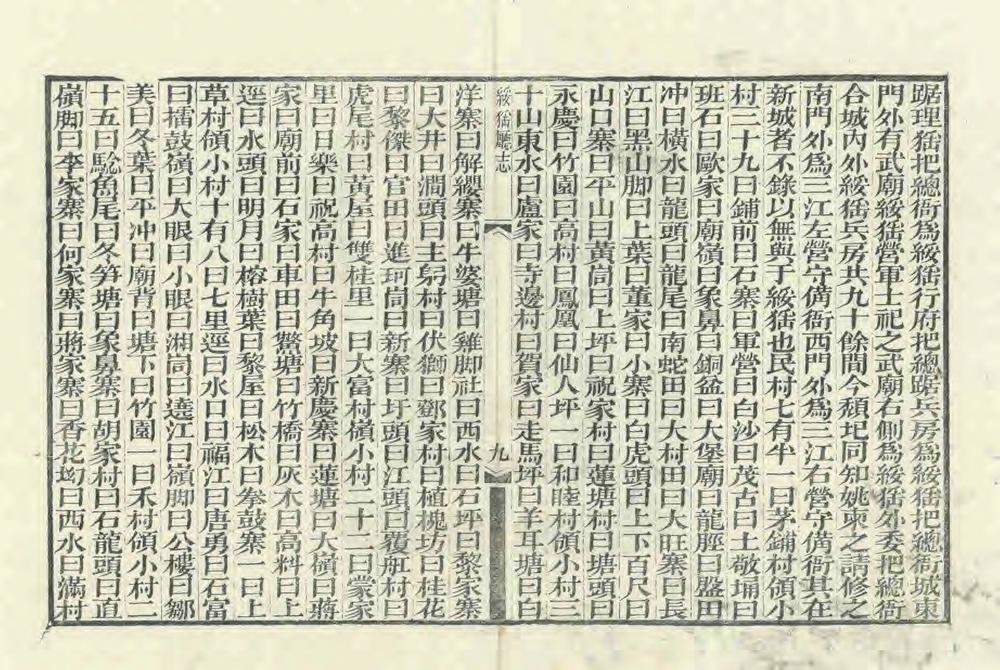 踞理猺把總衙爲綏猺行府把總踞兵房爲綏猺把總衙城東
門外有武廟綏猺營軍士祀之武廟右側爲綏猺外委把總衙
合城內外綏猺兵房共九十餘間今頹圮同知姚柬之請修之
南門外爲三江左營守備衙西門外爲三江右營守備衙其在
新城者不錄以無與于綏猺也民村七有半一曰茅鋪村領小
村二十九曰鋪前曰石寨曰軍營曰白沙曰茂古曰土敬埇曰
班石曰歐家曰廟嶺曰象鼻曰銅盆曰大堡廟曰龍脛曰盤田
冲曰橫水曰龍頭曰龍尾曰南蛇田曰大村田曰大旺寨曰長
江曰黑山脚曰上葉曰董家曰小寨曰白虎頭曰上下百尺曰
山口寨曰平山曰黃崗曰上坪曰祝家村曰蓮塘村曰塘頭曰
永慶曰竹園曰高村曰鳳凰曰仙人坪一曰和睦村領小村三
十山東水曰盧家曰寺邊村曰賀家曰走馬坪曰羊耳塘曰白
綏猺廳志
九
洋寨曰解纓寨曰牛婆塘曰雞脚社曰西水曰石坪曰黎家寨
曰大井曰澗頭曰主躬村曰伏獅曰鄧家村曰植槐坊曰桂花
曰黎傑曰官田曰進珂崗曰新寨曰圩頭曰江頭曰覆舡村曰
虎尾村曰黃屋曰雙桂里一曰大富村嶺小村二十二曰蒙家
里曰日樂曰祝高村曰牛角坡曰新慶寨曰蓮塘曰大嶺曰蔣
家曰廟前曰石家曰車田曰鰲塘曰竹橋曰灰木曰高料曰上
逕曰水頭曰明月曰榕樹葉曰黎屋曰松木曰拳鼓寨一曰上
草村領小村十有八曰七里逕曰水口曰福江曰唐勇曰石富
曰擂鼓嶺曰大眼曰小眼曰湘峝曰遶江曰嶺脚曰公樓曰鄒
美曰冬葉曰平冲曰廟背曰塘下曰竹園一曰禾村領小村二
十五曰駝魚尾曰冬笋塘曰象鼻寨曰胡家村曰石龍頭曰直
嶺脚曰李家寨曰何家寨曰蔣家寨曰香花坳曰西水曰滿村